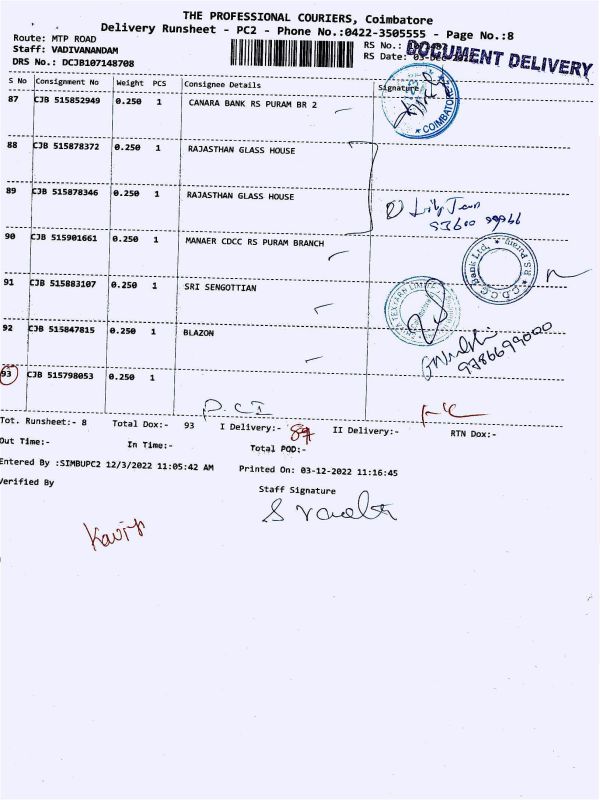 THE PROFESSIONAL COURIERS, Coimbatore
Delivery Runsheet - PC2 - Phone No.:0422-3505555 - Page No.:8
Route: MTP ROAD
Staff: VADIVANANDAM
DRS No.: DCJB107148708
RS No.:
RS Date: 03-Dec-
DOCUMENT DELIVERY
S No Consignment No Weight PCS Consignee Details Signature
87 CJB 515852949 0.250 1 CANARA BANK RS PURAM BR 2
COIMBATORE
88 CJB 515878372 0.250 1 RAJASTHAN GLASS HOUSE
89 CJB 515878346 0.250 1 RAJASTHAN GLASS HOUSE
93600 99966
90 CJB 515901661 0.250 1 MANAER CDCC RS PURAM BRANCH
C.D.C.C. Bank Ltd. R S Puram
91 CJB 515883107 0.250 1 SRI SENGOTTIAN
92 CJB 515847815 0.250 1 BLAZON
9786699000
93 CJB 515798053 0.250 1
P.CI
Tot. Runsheet:- 8 Total Dox:- 93 I Delivery:- 89 II Delivery:- RTN Dox:-
Out Time:- In Time:- Total POD:-
Entered By :SIMBUPC2 12/3/2022 11:05:42 AM Printed On: 03-12-2022 11:16:45
Verified By Staff Signature